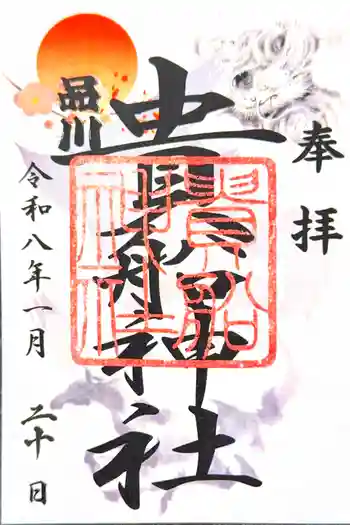 奉拝
品川
貴船神社
貴船神社
令和八年一月二十日